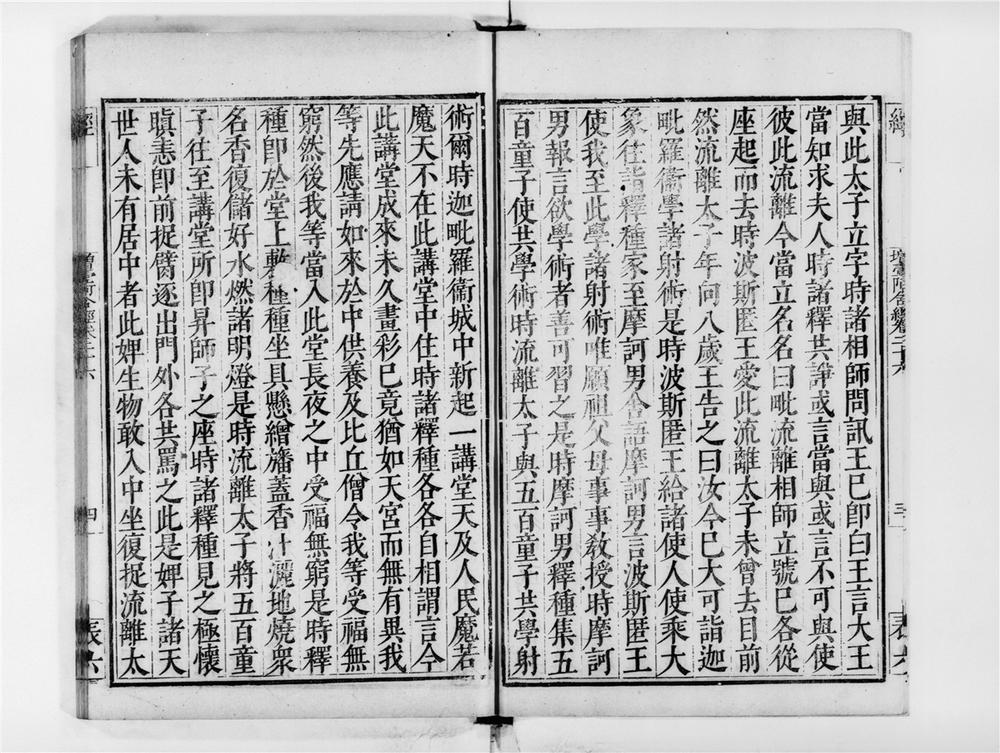 與此太子立字時諸相師問訊王已即白王言大王
當知求夫人時諸釋共諍或言當與或言不可與使
彼此流離今當立名名曰毗流離相師立號已各從
座起而去時波斯匿王愛此流離太子未曾去目前
然流離太子年向八歲王告之曰汝今已大可詣迦
毗羅衛學諸射術是時波斯匿王給諸使人使乘大
象往詣釋種家至摩訶男舍語摩訶男言波斯匿王
使我至此學諸射術唯願祖父母事事教授時摩訶
男報言欲學術者善可習之是時摩訶男釋種集五
百童子使共學術時流離太子與五百童子共學射
術爾時迦毗羅衛城中新起一講堂天及人民魔若
魔天不在此講堂中住時諸釋種各各自相謂言今
此講堂成來未久畫彩已竟猶如天宮而無有異我
等先應請如來於中供養及比丘僧令我等受福無
窮然後我等當入此堂長夜之中受福無窮是時釋
種即於堂上敷種種坐具懸繒旛蓋香汁灑地燒眾
名香復儲好水燃諸明燈是時流離太子將五百童
子往至講堂所即昇師子之座時諸釋種見之極懷
瞋恚即前捉臂逐出門外各共罵之此是婢子諸天
世人未有居中者此婢生物敢入中坐復捉流離太
經
增壹阿含經卷二十六
三
表六
經
增壹阿含經卷二十六
四
表六